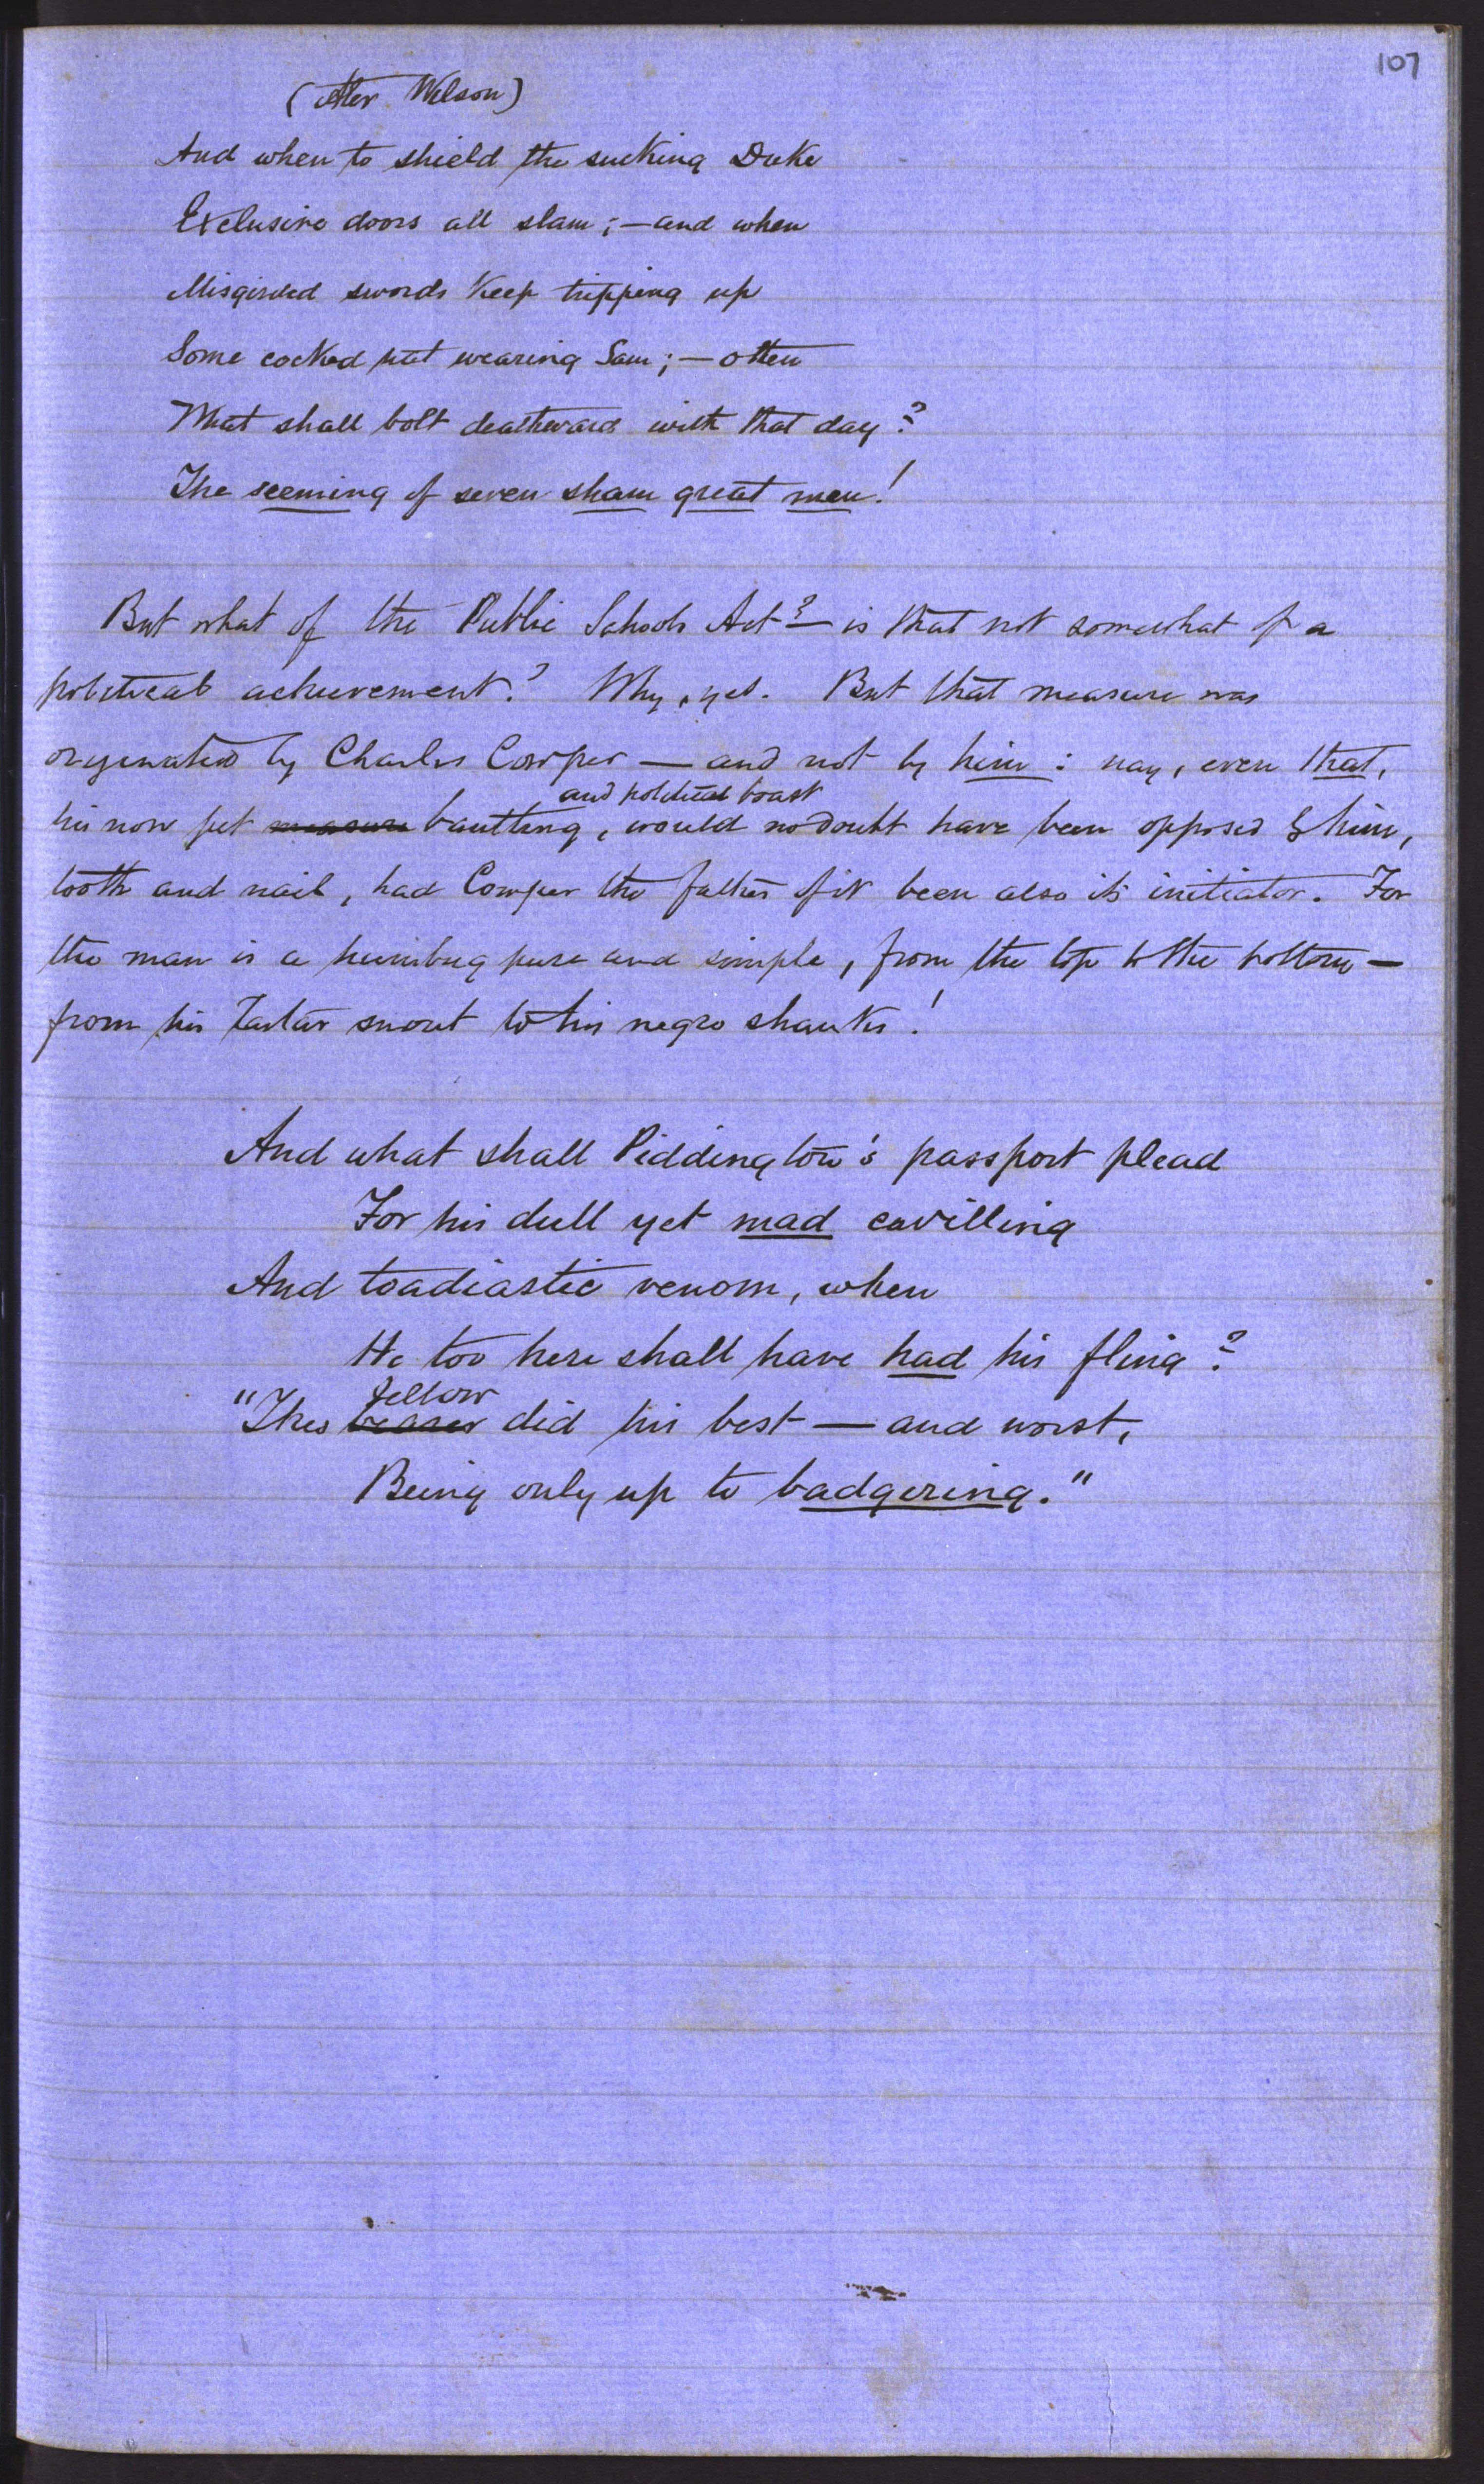 107
(After Wilson)
And when to shield the sucking Duke
Exclusive doors all slam; — and when
Misgirded swords keep tripping up
Some cocked hat wearing Sam; — often
What shall bolt deathward with that day?
The seeming of seven sham great men!
But what of the Public Schools Act? — is that not somewhat of a
political achievement? Why, yes. But that measure was
originated by Charles Cowper — and not by him: nay, even that,
and political boast
his now pet measure bantling, would no doubt have been opposed by him,
tooth and nail, had Cowper the father of it been also its initiator. For
the man is a humbug pure and simple, from the top to the bottom —
from his Tartar snout to his negro shanks!
And what shall Piddington's passport plead
For his dull yet mad cavilling
And toadiastic venom, when
He too here shall have had his fling?
fellow
"This did his best — and worst,
Being only up to badgering."